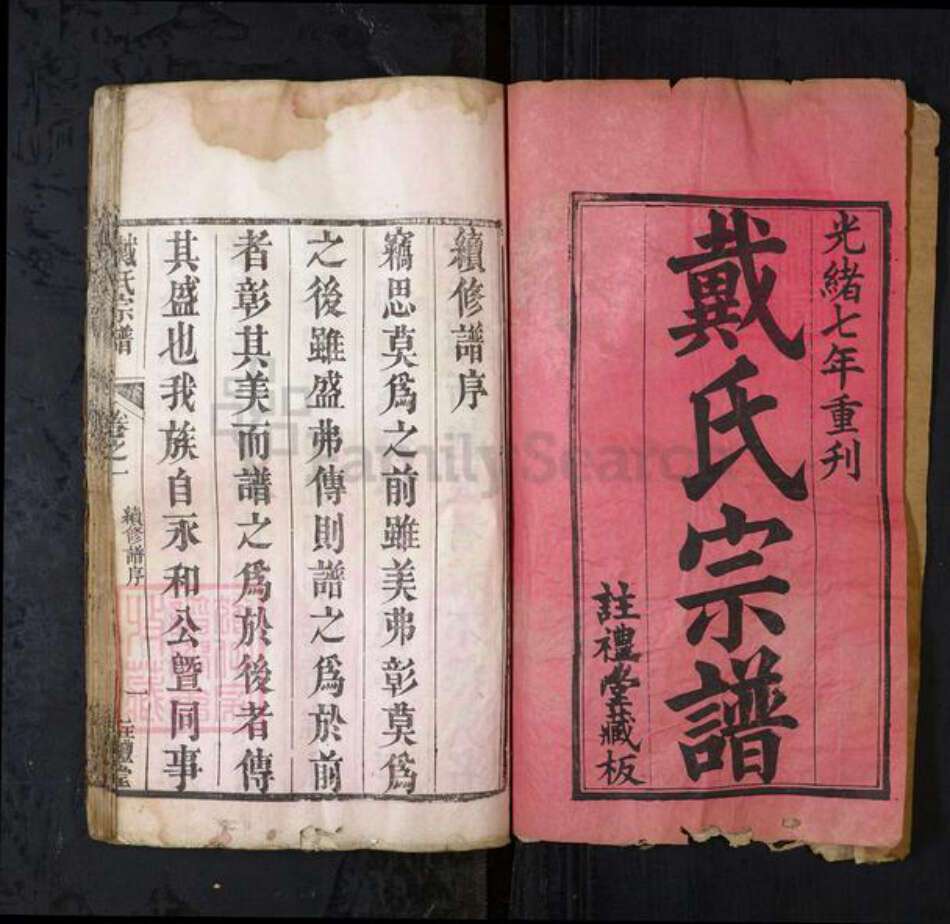 光緒七年重刊
戴氏宗譜
註禮堂藏板
續修譜序
竊思莫爲之前雖美弗彰莫爲
之後雖盛弗傳則譜之爲於前
者彰其美而譜之爲於後者傳
其盛也我族自永和公曁同事
戴氏宗譜
卷之一
續修譜序
一
註禮堂
FamilySearch